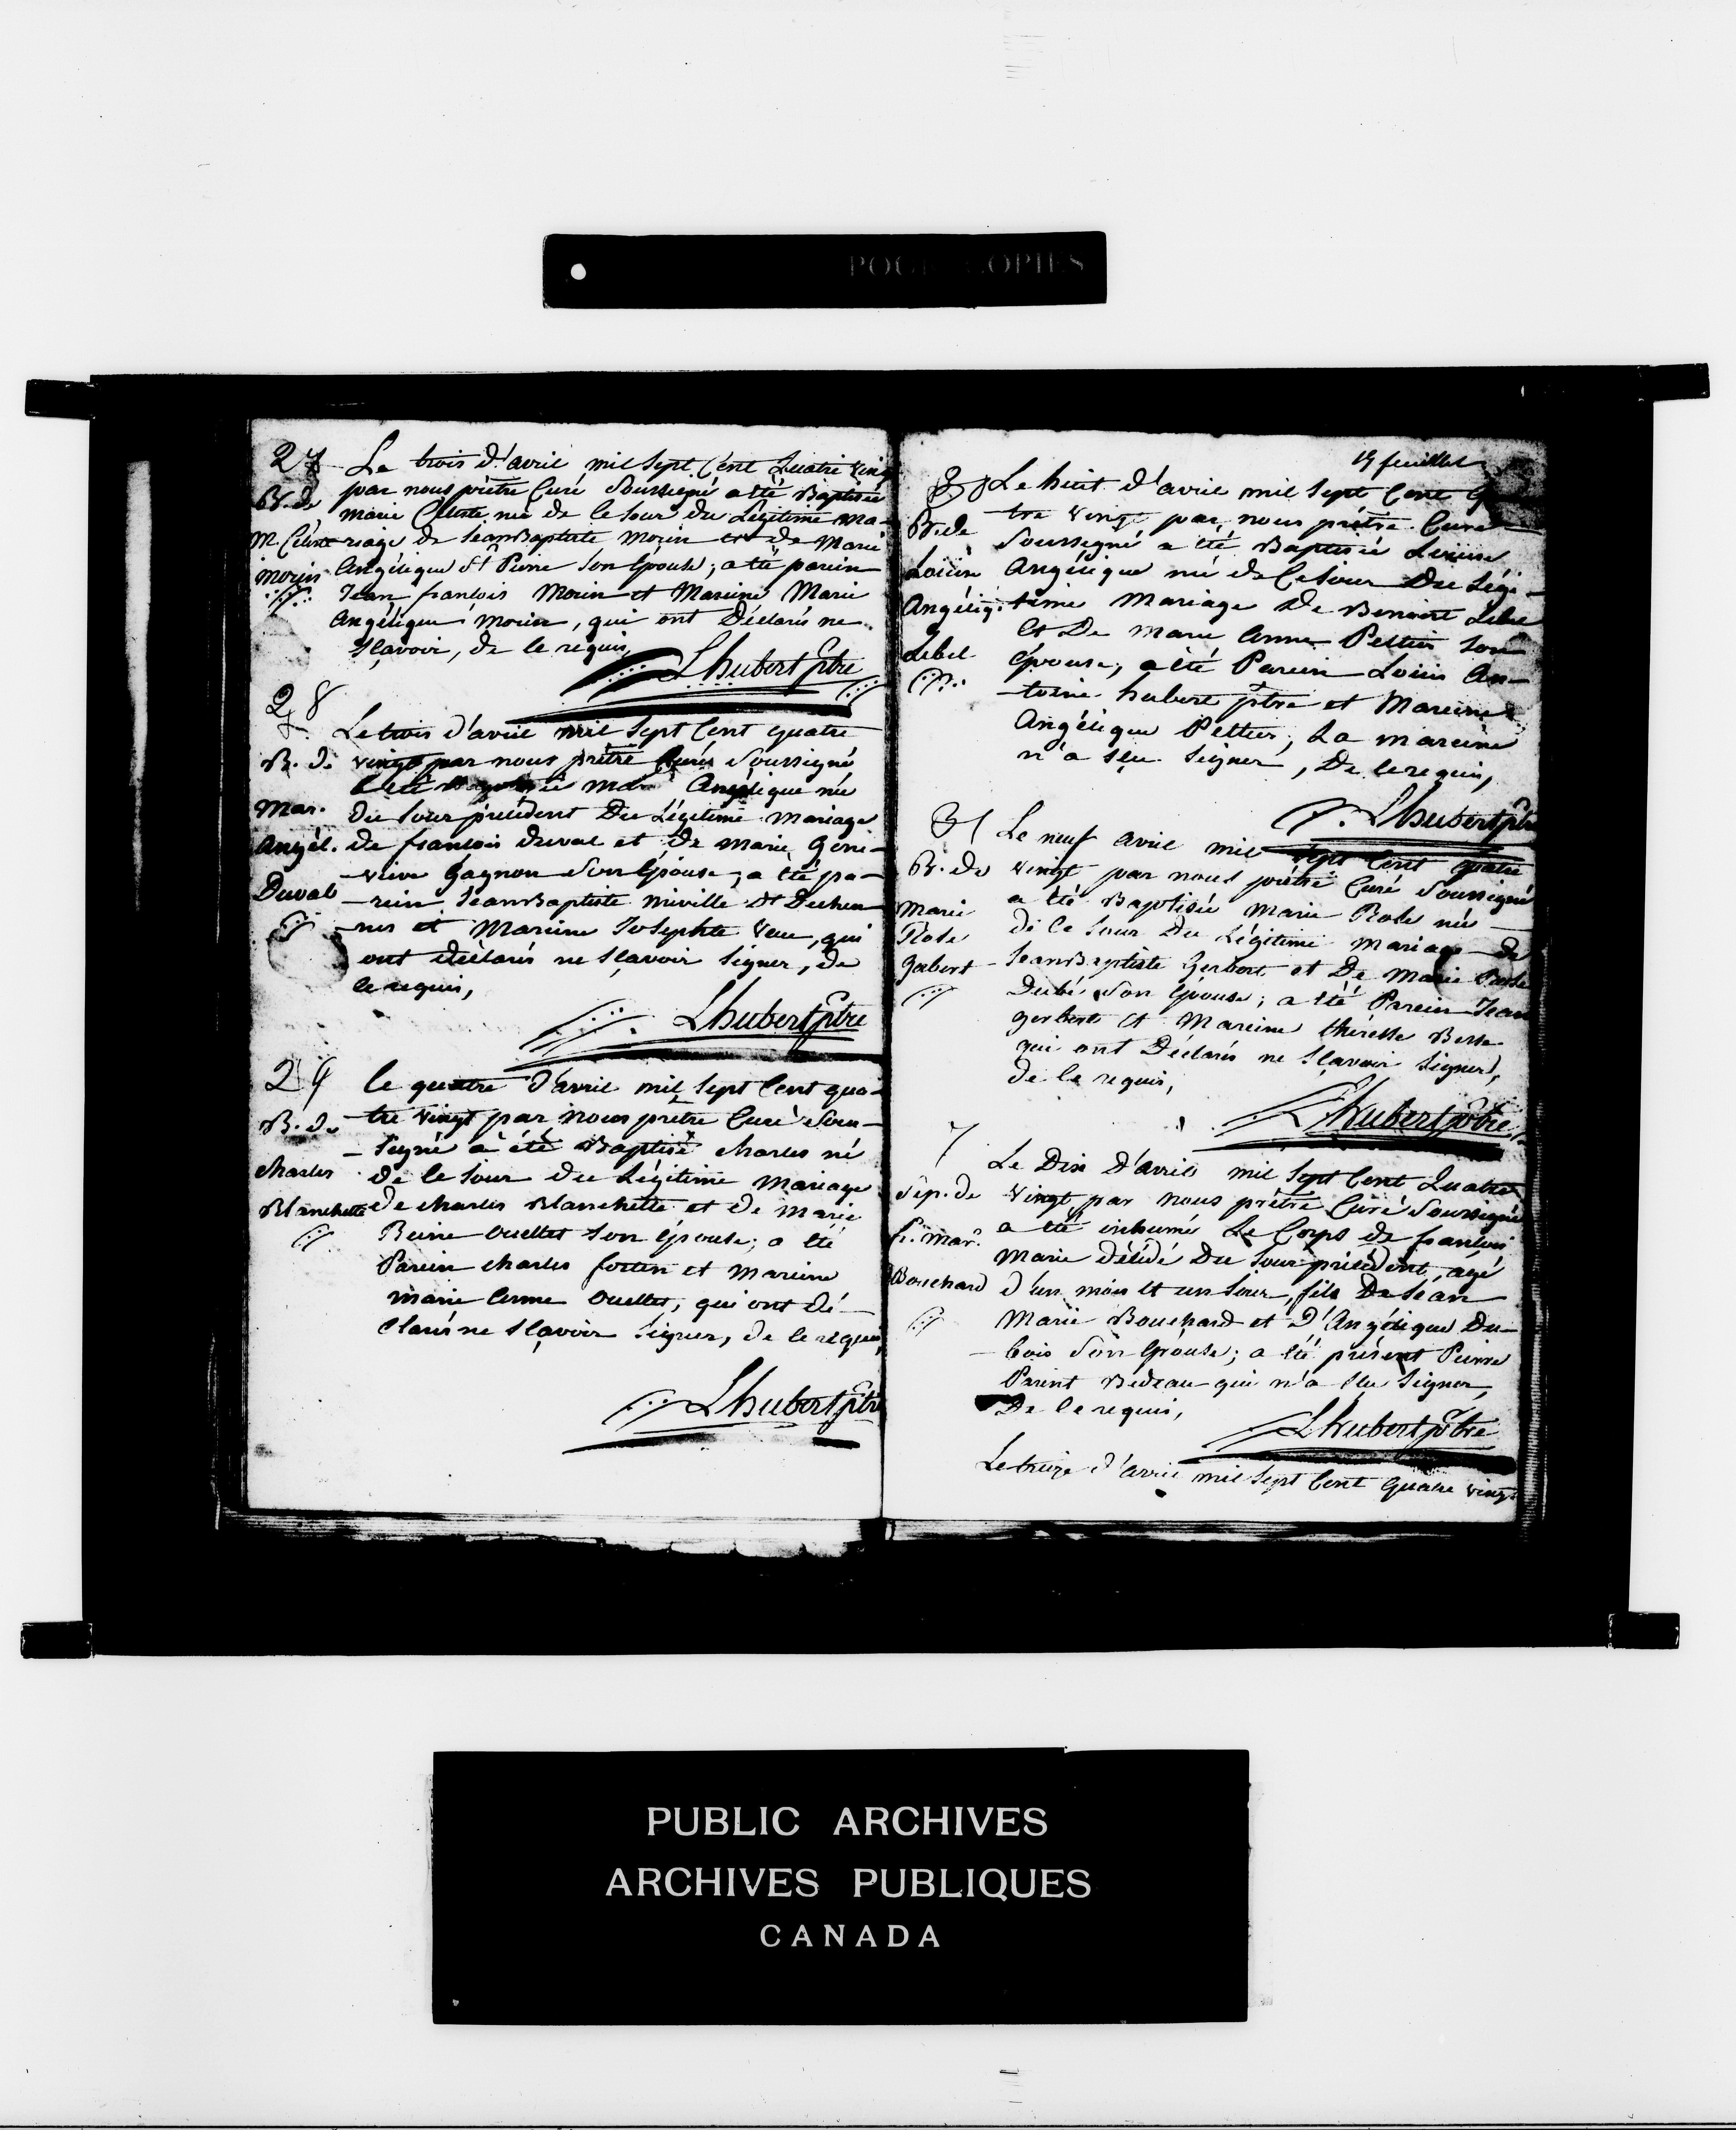 POOR COPIES
27 Le trois d'avril mil sept Cent Quatre vingt
B. de par nous prêtre Curé Soussigné a été Baptisée
marie Celeste née de ce Jour du Légitime ma-
M. Celeste riage de Jean Baptiste morin et de Marie
morin Angélique St Pierre Son Epouse; a été parein
Jean françois Morin et Mareine Marie
Angélique morin, qui ont Déclarés ne
sçavoir, de ce requis,
Lhubert Ptre
28
Le trois d'avril mil Sept Cent quatre
B. de vingt par nous prêtre Curé Soussigné
a été Baptisée marie Angélique née
Mar. du Jour précédent Du Légitime mariage
Angél. de françois Duval et De marie Gene-
Duval -vieve Gagnon Son Epouse; a été pa-
-rein Jean Baptiste miville dt Dechen-
nes et Mareine Josephte , qui
ont déclarés ne Sçavoir Signer, de
ce requis,
Lhubert Ptre
29 le quatre d'avril mil Sept Cent qua-
B. de tre vingt par nous prêtre Curé Sous-
-signé a été Baptisé charles né
charles de ce Jour du Légitime Mariage
Blanchette de charles Blanchette et de marie
Reine Ouellet Son épouse; a été
Parein charles fortin et Mareine
marie Anne Ouellet, qui ont dé-
Clarés ne Sçavoir Signer, de ce requis,
Lhubert ptre
19 feuillet
30 Le huit d'avril mil Sept Cent qua-
B. de tre vingt par nous prêtre Curé
Soussigné a été Baptisée Louise
Louise Angélique née de Ce Jour Du Légi-
Angéliq. time Mariage De Benoint Lebel
Et De marie Anne Peltier Son
Lebel épouse; a été Parein Louis An-
-toine hubert ptre et Mareine
Angélique Peltier; La mareine
n'a sçu Signer, De ce requis,
Lhubert ptre
31 Le neuf avril mil Sept Cent quatre
B. de vingt par nous prêtre Curé Soussigné
a été Baptisée Marie Rose née
Marie de Ce Jour Du Légitime Mariage De
Rose Jean Baptiste Gerbert et De Marie
Gerbert Dubé Son Epouse; a été Parein Jean
gerbert et Mareine théresse
qui ont Déclarés ne Sçavoir Signer,
de ce requis,
Lhubert ptre
7
Le Dix D'avril mil Sept Cent Quatre
Sép. de vingt par nous prêtre Curé Soussigné
a été inhumé Le Corps de françois
fr. mar. Marie Décédé Du Jour précédent, agé
Bouchard d'un mois et un Jour, fils De Jean
Marie Bouchard et D'Angélique Du-
-bois Son Epouse; a été présent Pierre
Parent Bedeau qui n'a sçu Signer,
De Ce requis,
Lhubert ptre
Le treize d'avril mil Sept Cent Quatre vingt
PUBLIC ARCHIVES
ARCHIVES PUBLIQUES
CANADA